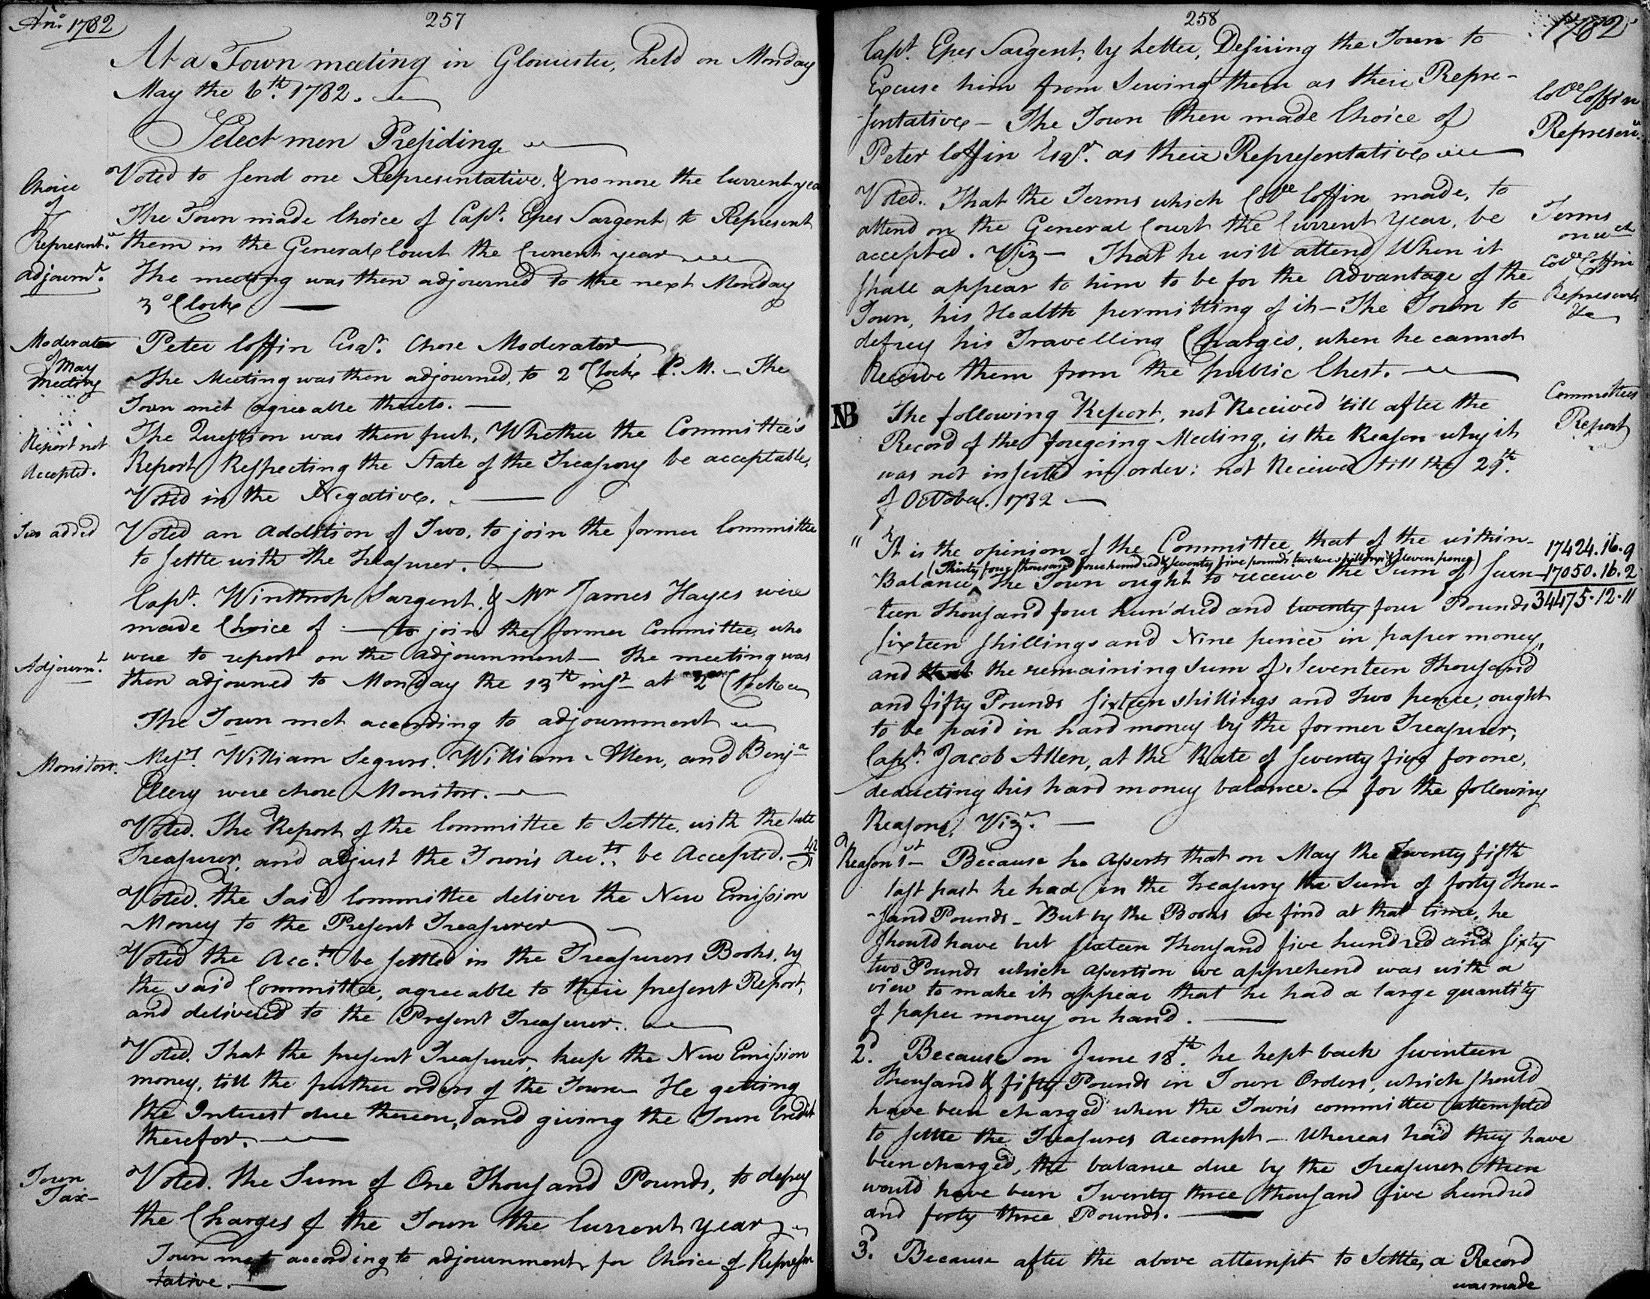 Ano. 1782
257
At a Town meeting in Gloucester, held on Monday
May the 6th. 1782.
Select men Presiding
Choice
of
Represent.e
Voted to send one Representative, & no more the Current year
The Town made Choice of Capt. Epes Sargent to Represent
them in the General Court the Current year
adjournt.
The meeting was then adjourned to the next Monday
3 oClock
Moderator
of May
Meeting
Peter Coffin Esqr. Chose Moderator
The Meeting was then adjourned, to 2 Clock P. M. - The
Town met agreeable thereto.
Report not
Accepted.
The Question was then put, Whether the Committee's
Report Respecting the State of the Treasury be acceptable,
Voted in the Negative.
Two added
Voted an Addition of Two, to join the former Committee
to settle with the Treasurer.
Capt. Winthrop Sargent & Mr James Hayes were
made Choice of to join the former Committee, who
were to report on the adjournment - The meeting was
Adjournt.
then adjourned to Monday the 13th inst at 2 Clock
The Town met according to adjournment
Monitors.
Messrs. William Segurs, William Allen, and Benja
Ellery were chose Monitors.
Voted. The Report of the Committee to Settle, with the late
Treasurer, and adjust the Town's Accts. be Accepted.
Voted. the said Committee deliver the New Emission
Money to the Present Treasurer
Voted the Accts. be settled in the Treasurers Books, by
the said Committee, agreeable to their present Report,
and delivered to the Present Treasurer.
Voted. That the present Treasurer, keep the New Emission
money, till the further orders of the Town - He getting
the Interest due thereon, and giving the Town Credit
therefor.
Town
Tax
Voted. the Sum of One Thousand Pounds, to defrey
the Charges of the Town the Current year
Town met according to adjournment, for Choice of Represen
tative.
258
1782
Capt. Epes Sargent, by Letter, Desiring the Town to
Excuse him from Serving them as their Repre-
sentative - The Town then made Choice of
Peter Coffin Esqr. as their Representative
Cole Coffin
Represent.
Voted. That the Terms which Cole Coffin made, to
attend on the General Court the Current Year, be
accepted. Viz - That he will attend When it
shall appear to him to be for the Advantage of the
Town, his Health permitting of it - The Town to
defrey his Travelling Charges, when he cannot
Receive them from the public Chest.
Terms
on wch
Cole Coffin
Represents
&c
NB
The following Report, not Received till after the
Record of the foregoing Meeting, is the Reason why it
was not inserted in order: not Received till the 29th.
of October. 1782
Committees
Report
" It is the opinion of the Committee that of the within
(Thirty four thousand four hundred & seventy five pounds twelve shillings & eleven pence)
Balance, the Town ought to receive the Sum of Seven-
teen Thousand four hundred and twenty four Pounds
17424.16.9
17050.16.2
34475.12.11
sixteen shillings and Nine pence in paper money,
and that the remaining sum of Seventeen Thousand
and fifty Pounds sixteen shillings and Two pence, ought
to be paid in hard money by the former Treasurer,
Capt. Jacob Allen, at the Rate of seventy five for one,
deducting his hard money balance. - for the following
Reasons, Vizt.
Reason 1st - Because he Asserts that on May the Twenty fifth
last past he had in the Treasury the Sum of forty Thou-
sand Pounds - But by the Books we find at that time, he
should have but sixteen Thousand five hundred and sixty
two Pounds which assertion we apprehend was with a
view to make it appear that he had a large quantity
of paper money on hand.
2d. Because on June 18th. he kept back seventeen
Thousand & fifty Pounds in Town Orders, which should
have been charged when the Town's committee attempted
to settle the Treasures accompt - Whereas had they have
been charged, the balance due by the Treasurer then
would have been Twenty three thousand five hundred
and forty three Pounds.
3d. Because after the above attempt to settle, a Record
was made